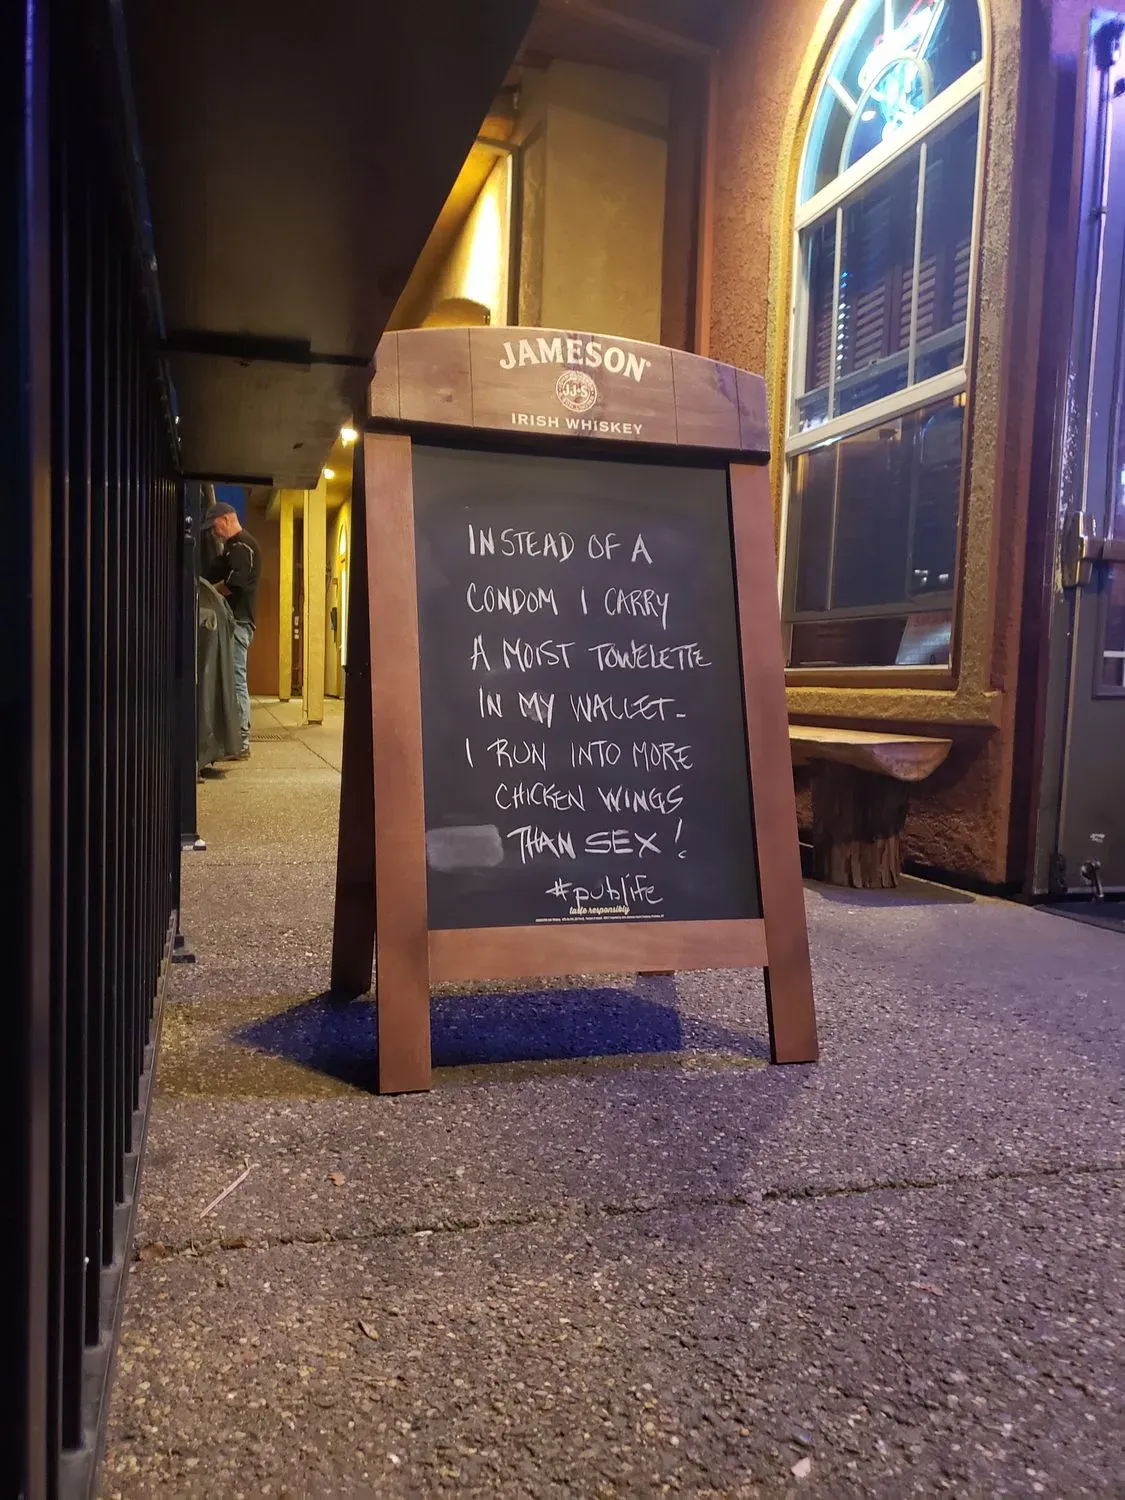 JAMESON
JJ&S
IRISH WHISKEY
INSTEAD OF A
CONDOM I CARRY
A MOIST TOWELETTE
IN MY WALLET-
I RUN INTO MORE
CHICKEN WINGS
THAN SEX!
#publife
taste responsibly